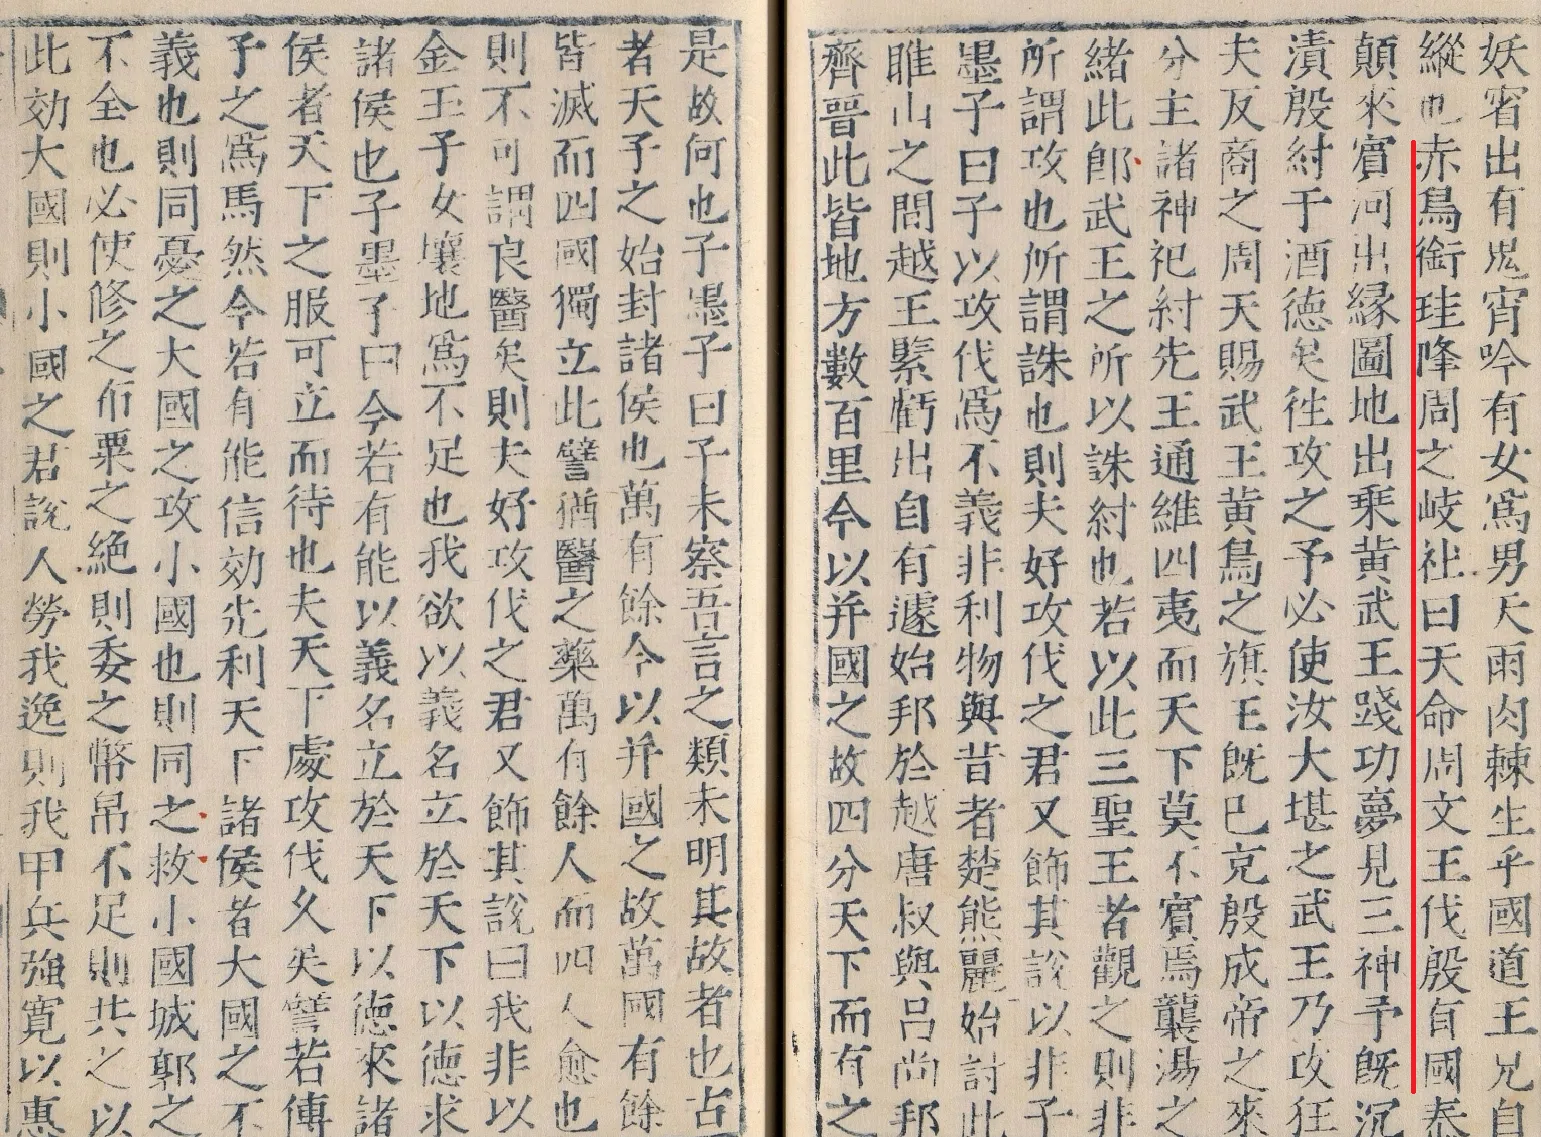 妖宵出有鬼宵吟有女為男天雨肉棘生乎國道王兄自
縱也赤鳥銜珪降周之岐社曰天命周文王伐殷有國泰
顛來賔河出緣圖地出乗黄武王踐功夢見三神予既沉
漬殷紂于酒德矣徃攻之予必使汝大堪之武王乃攻狂
夫反商之周天賜武王黄鳥之旗王既已克殷成帝之來
分主諸神祀紂先王通維四夷而天下莫不賔焉襲湯之
緒此卽武王之所以誅紂也若以此三聖王者觀之則非
所謂攻也所謂誅也則夫好攻伐之君又飾其說以非子
墨子曰子以攻伐為不義非利物與昔者楚熊麗始討此
睢山之間越王繄虧出自有遽始邦於越唐叔與呂尚邦
齊晉此皆地方數百里今以并國之故四分天下而有之
是故何也子墨子曰子未察吾言之類未明其故者也古
者天子之始封諸侯也萬有餘今以并國之故萬國有餘
皆滅而四國獨立此譬猶醫之藥萬有餘人而四人愈也
則不可謂良醫矣則夫好攻伐之君又飾其說曰我非以
金玉子女壤地為不足也我欲以義名立於天下以德求
諸侯也子墨子曰今若有能以義名立於天下以德來諸
侯者天下之服可立而待也夫天下處攻伐久矣譬若傅
予之為馬然今若有能信効先利天下諸侯者大國之不
義也則同憂之大國之攻小國也則同之救小國城郭之
不全也必使修之布粟之絶則委之幣帛不足則共之以
此効大國則小國之君說人勞我逸則我甲兵強寛以惠